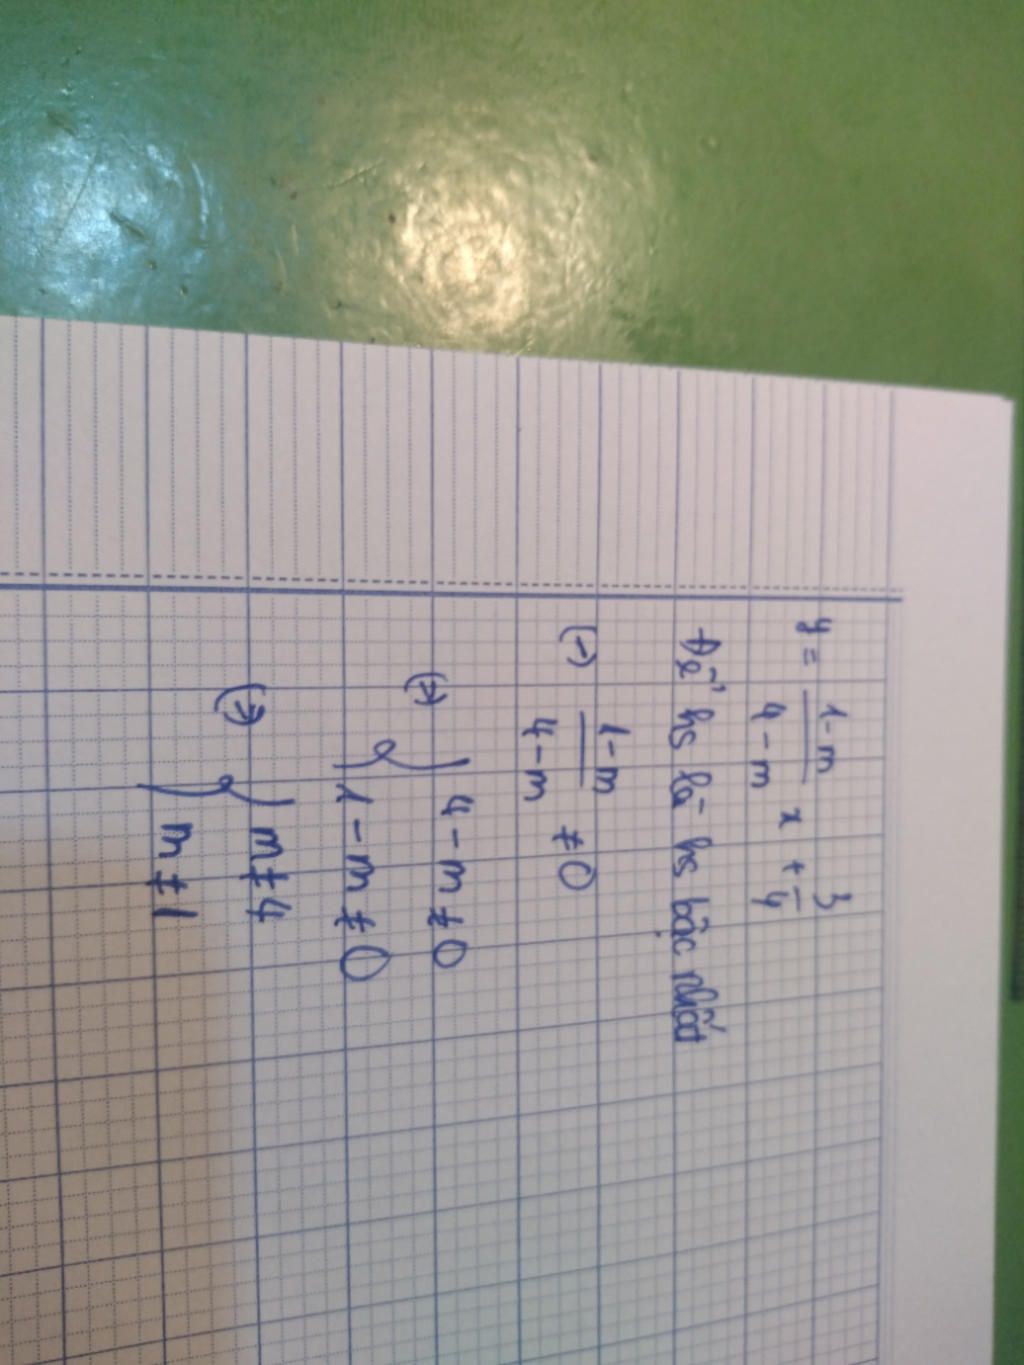 y = \frac{1-m}{4-m} x + \frac{3}{4}
Để hs là hs bậc nhất
(→) \frac{1-m}{4-m} ≠ 0
(→) { 4 - m ≠ 0
1 - m ≠ 0
(→) { m ≠ 4
m ≠ 1